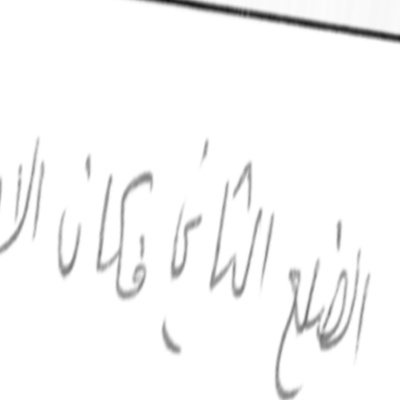 الضلع الثاني فكان